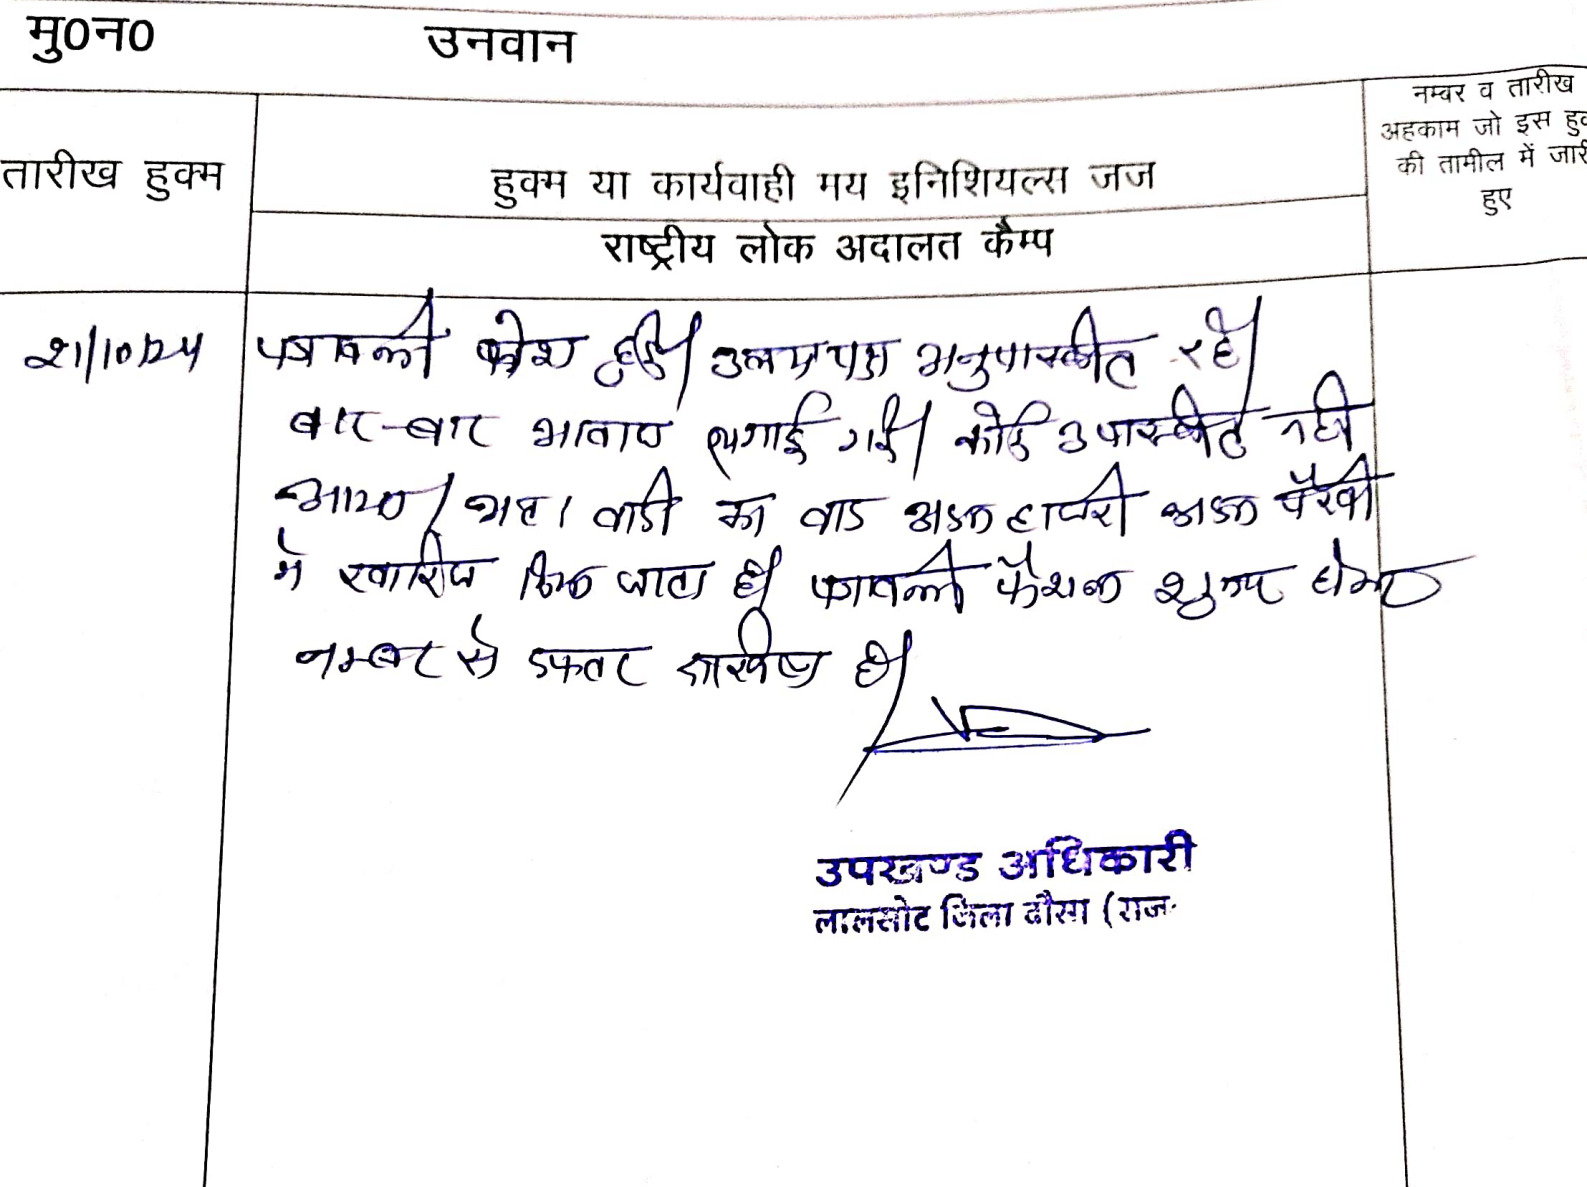 मु0न0 उनवान
तारीख हुक्म
हुक्म या कार्यवाही मय इनिशियल्स जज
नम्बर व तारीख
अहकाम जो इस हुक
की तामील में जारी
हुए
राष्ट्रीय लोक अदालत कैम्प
21/10/24 पत्रावली पेश हुई। उभयपक्ष अनुपस्थित रहे।
बार-बार आवाज लगाई गई। कोई उपस्थित नही
आया। अतः वादी का वाद अदम हाजरी अदम पैरवी
मे खारिज किया जाता है। पत्रावली फैसल शुमार होकर
नम्बर से दफ्तर दाखिल हो।
उपखण्ड अधिकारी
लालसोट जिला दौसा (राज.